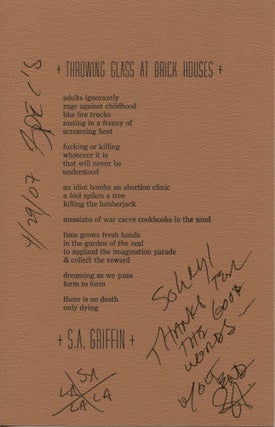 + THROWING GLASS AT BRICK HOUSES +
adults ignorantly
rage against childhood
like fire trucks
mating in a frenzy of
screaming heat
fucking or killing
whatever it is
that will never be
understood
an idiot bombs an abortion clinic
a fool spikes a tree
killing the lumberjack
messiahs of war carve cookbooks in the sand
time grows fresh hands
in the garden of the real
to applaud the imagination parade
& collect the reward
dreaming as we pass
form to form
there is no death
only dying
+ S.A. GRIFFIN +
4/29/07 SPEC'S
THANKS
THE GOOD
WORDS —
SA
LA LA